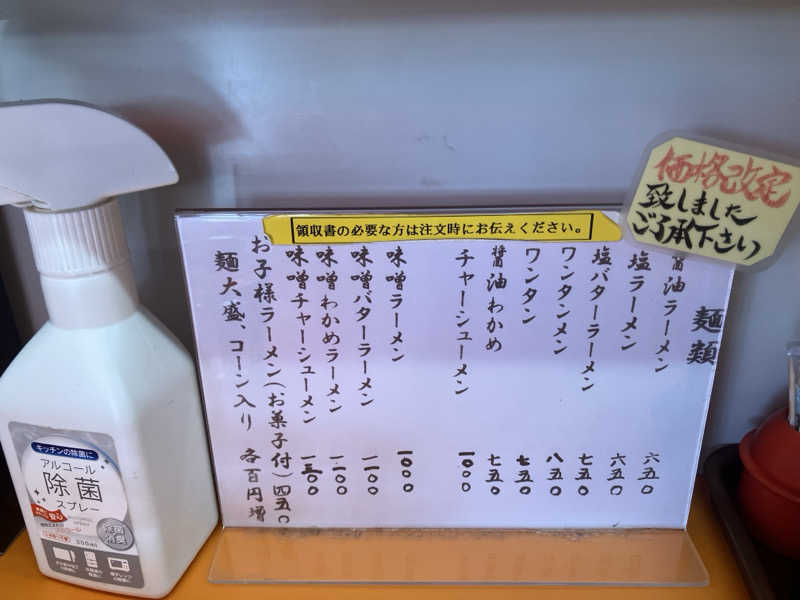 価格改定
致しました
ご了承下さい
領収書の必要な方は注文時にお伝えください。
麺類
醤油ラーメン 六五〇
塩ラーメン 六五〇
塩バターラーメン 七五〇
ワンタンメン 八五〇
ワンタン 七五〇
醤油わかめ 七五〇
チャーシューメン 一〇〇〇
味噌ラーメン 一〇〇〇
味噌バターラーメン 一一〇〇
味噌わかめラーメン 一一〇〇
味噌チャーシューメン 一三〇〇
お子様ラーメン(お菓子付) 四五〇
麺大盛、コーン入り 各百円増
キッチンの除菌に
アルコール
除菌
スプレー
除菌
消臭